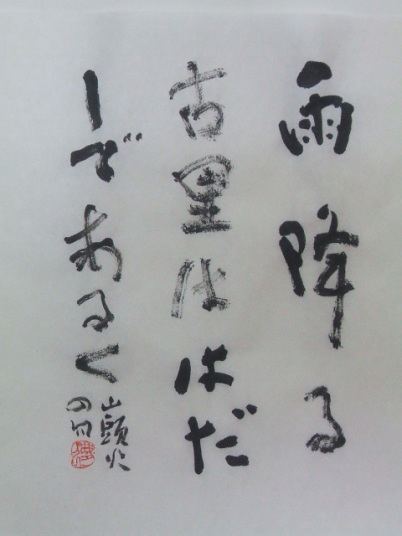 雨降る
古里ははだ
しであるく
山頭火
の句